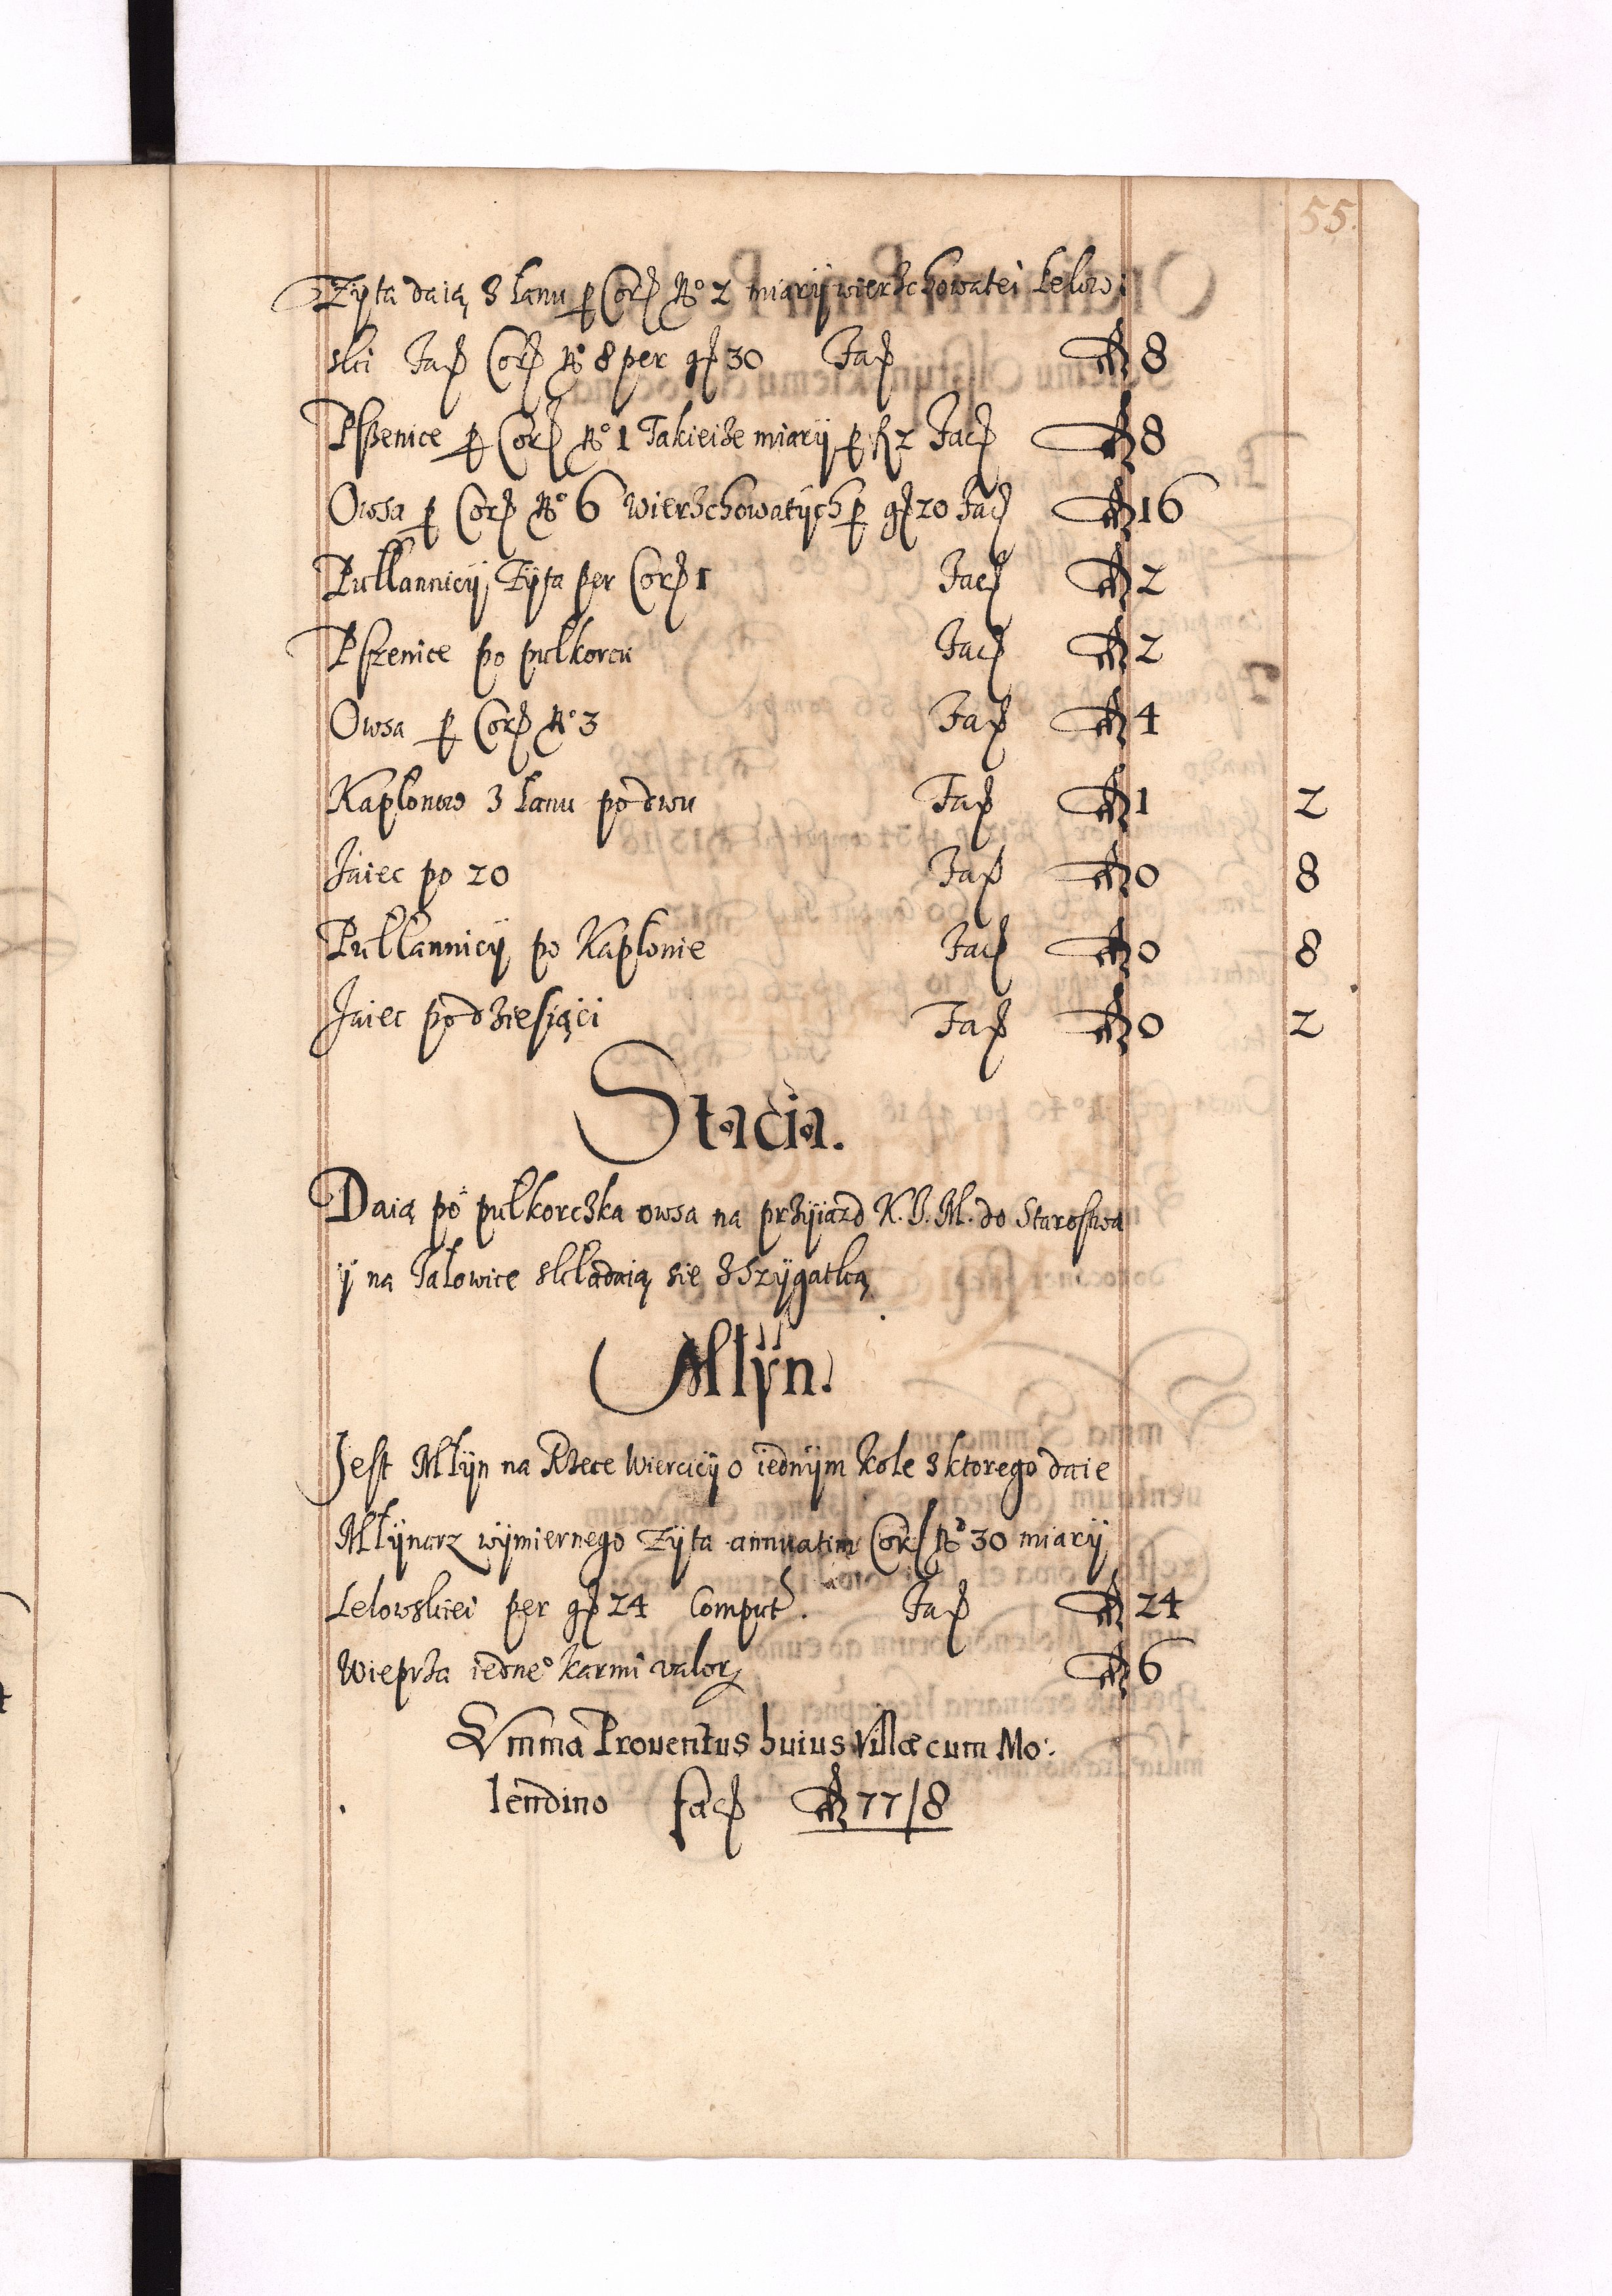 55.
Zÿta daią z Łanu per Cor. No 2 miarÿ wierzchowatei Lelow:
skı Fac. Cor. No 8 per gr. 30 Fac. fl. 8
Pszenice per Cor. No 1 Takieize miarÿ per fl. 2 Fac. fl. 8
Owsa per Cor. No 6 wierzchowatÿch per gr. 20 Fac. fl. 16
Pułłannicÿ Zÿta per Cor. 1 Fac. fl. 2
Pszenice po pułkorcu Fac. fl. 2
Owsa per Cor. No 3 Fac. fl. 4
Kapłonow z Łanu po dwu Fac. fl. 1 2
Jaiec po 20 Fac. fl. 0 8
Pułłannicÿ po Kapłonie Fac. fl. 0 8
Jaiec po dziesiąci Fac. fl. 0 2
Stacia.
Daią po pułkorczka owsa na przÿiazd K. J. M. do Starostwa
ÿ na Jałowice składaią się z Szÿgatką
Młÿn.
Jest Młÿn na Rzece Wiercicÿ o iednÿm kole z ktorego daie
Młÿnarz wÿmiernego Zÿta annuatim Cor. No 30 miarÿ
Lelowskiei per gr. 24 Comput. Fac. fl. 24
Wieprza iednego karmi valor. fl. 6
Summa Prouentus huius Villæ cum Mo:
lendino fac. fl. 77/8